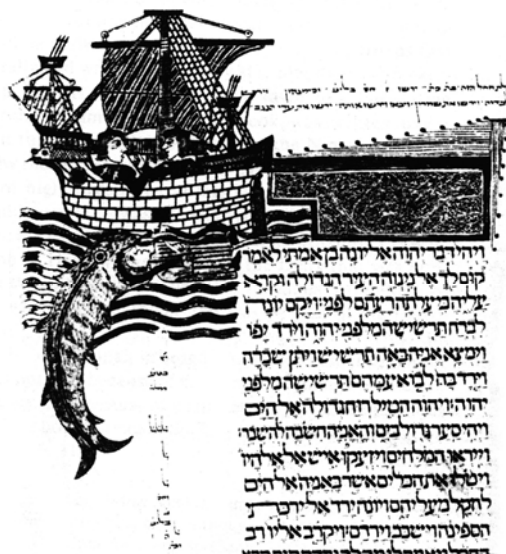 ויהי דבר יהוה אל יונה בן אמתי לאמר
קום לך אל נינוה העיר הגדולה וקרא
עליה כי עלתה רעתם לפני׃ ויקם יונה
לברח תרשישה מלפני יהוה וירד יפו
וימצא אניה באה תרשיש ויתן שכרה
וירד בה לבוא עמהם תרשישה מלפני
יהוה׃ ויהוה הטיל רוח גדולה אל הים
ויהי סער גדול בים והאניה חשבה להשבר׃
וייראו המלחים ויזעקו איש אל אלהיו
ויטלו את הכלים אשר באניה אל הים
להקל מעליהם ויונה ירד אל ירכתי
הספינה וישכב וירדם׃ ויקרב אליו רב